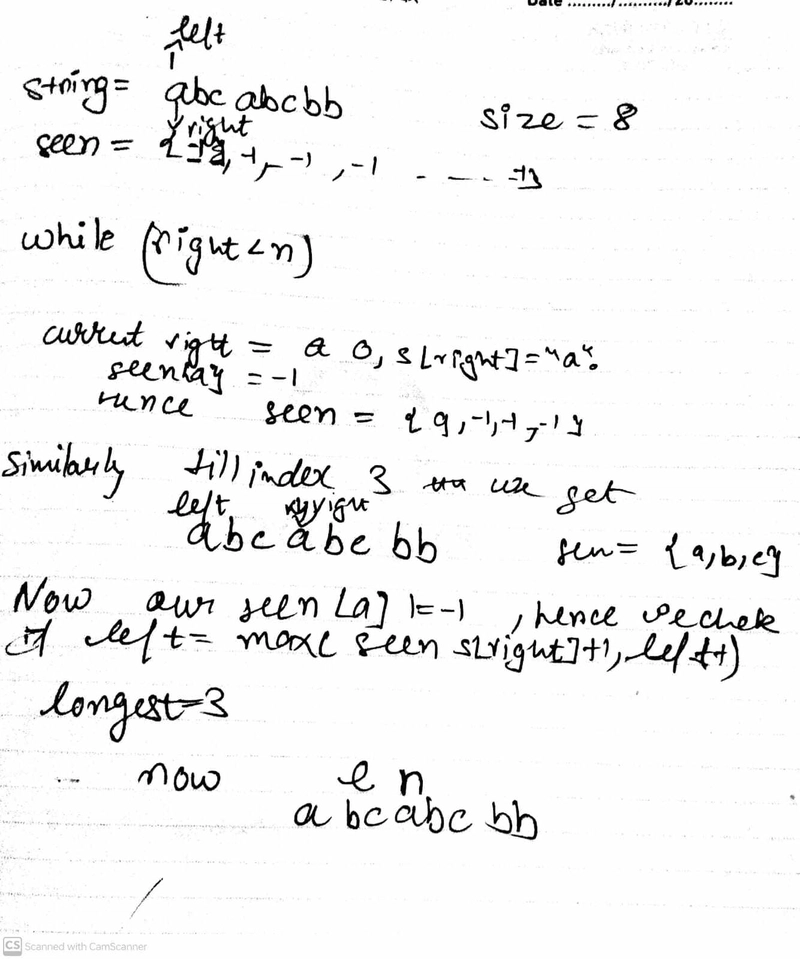 Date ........./........../20........
left
string = abc abcbb
size = 8
right
seen = {-1, -1, -1, -1 - — - - -1}
while (right < n)
current right = a 0, s[right] = "a".
seen[a] = -1
seen = { 9, -1, -1, -1 }
Similarly till index 3 we get
left right
abc abc bb seen = {a, b, c}
Now our seen [a] != -1 , hence we chek
if left = max( seen s[right]+1, left+)
longest = 3
now l n
a bc abc bb
CS Scanned with CamScanner